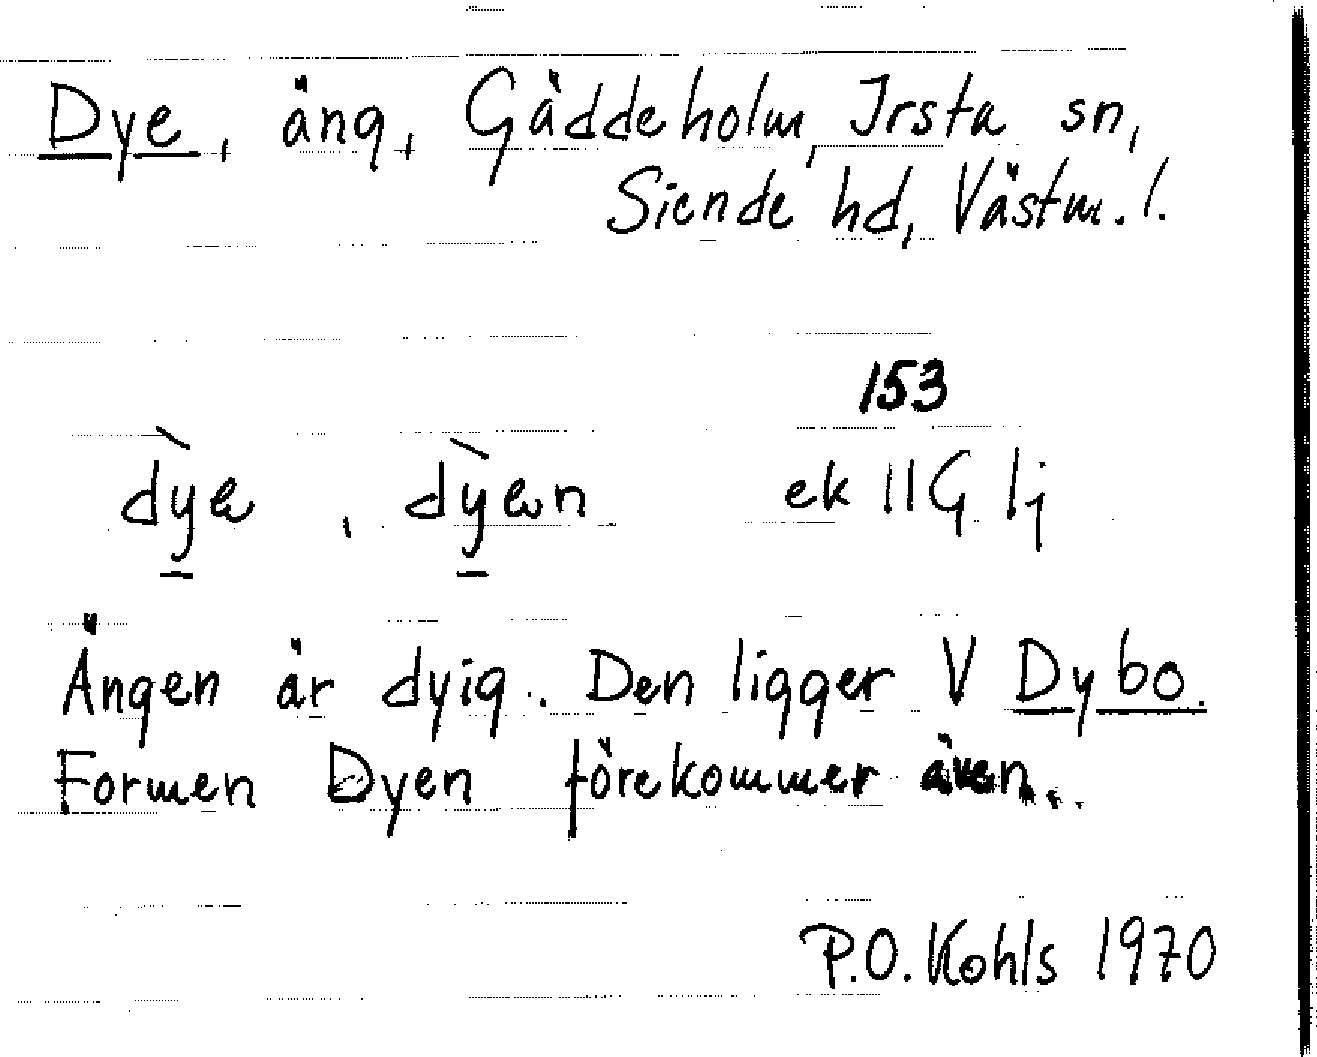 Dye, äng, Gäddeholm, Irsta sn,
Siende hd, Västm. l.
153
dỳe, dỳen ek 11G 1j
Ängen är dyig. Den ligger V Dybo.
Formen Dyen förekommer även.
P.O. Kohls 1970